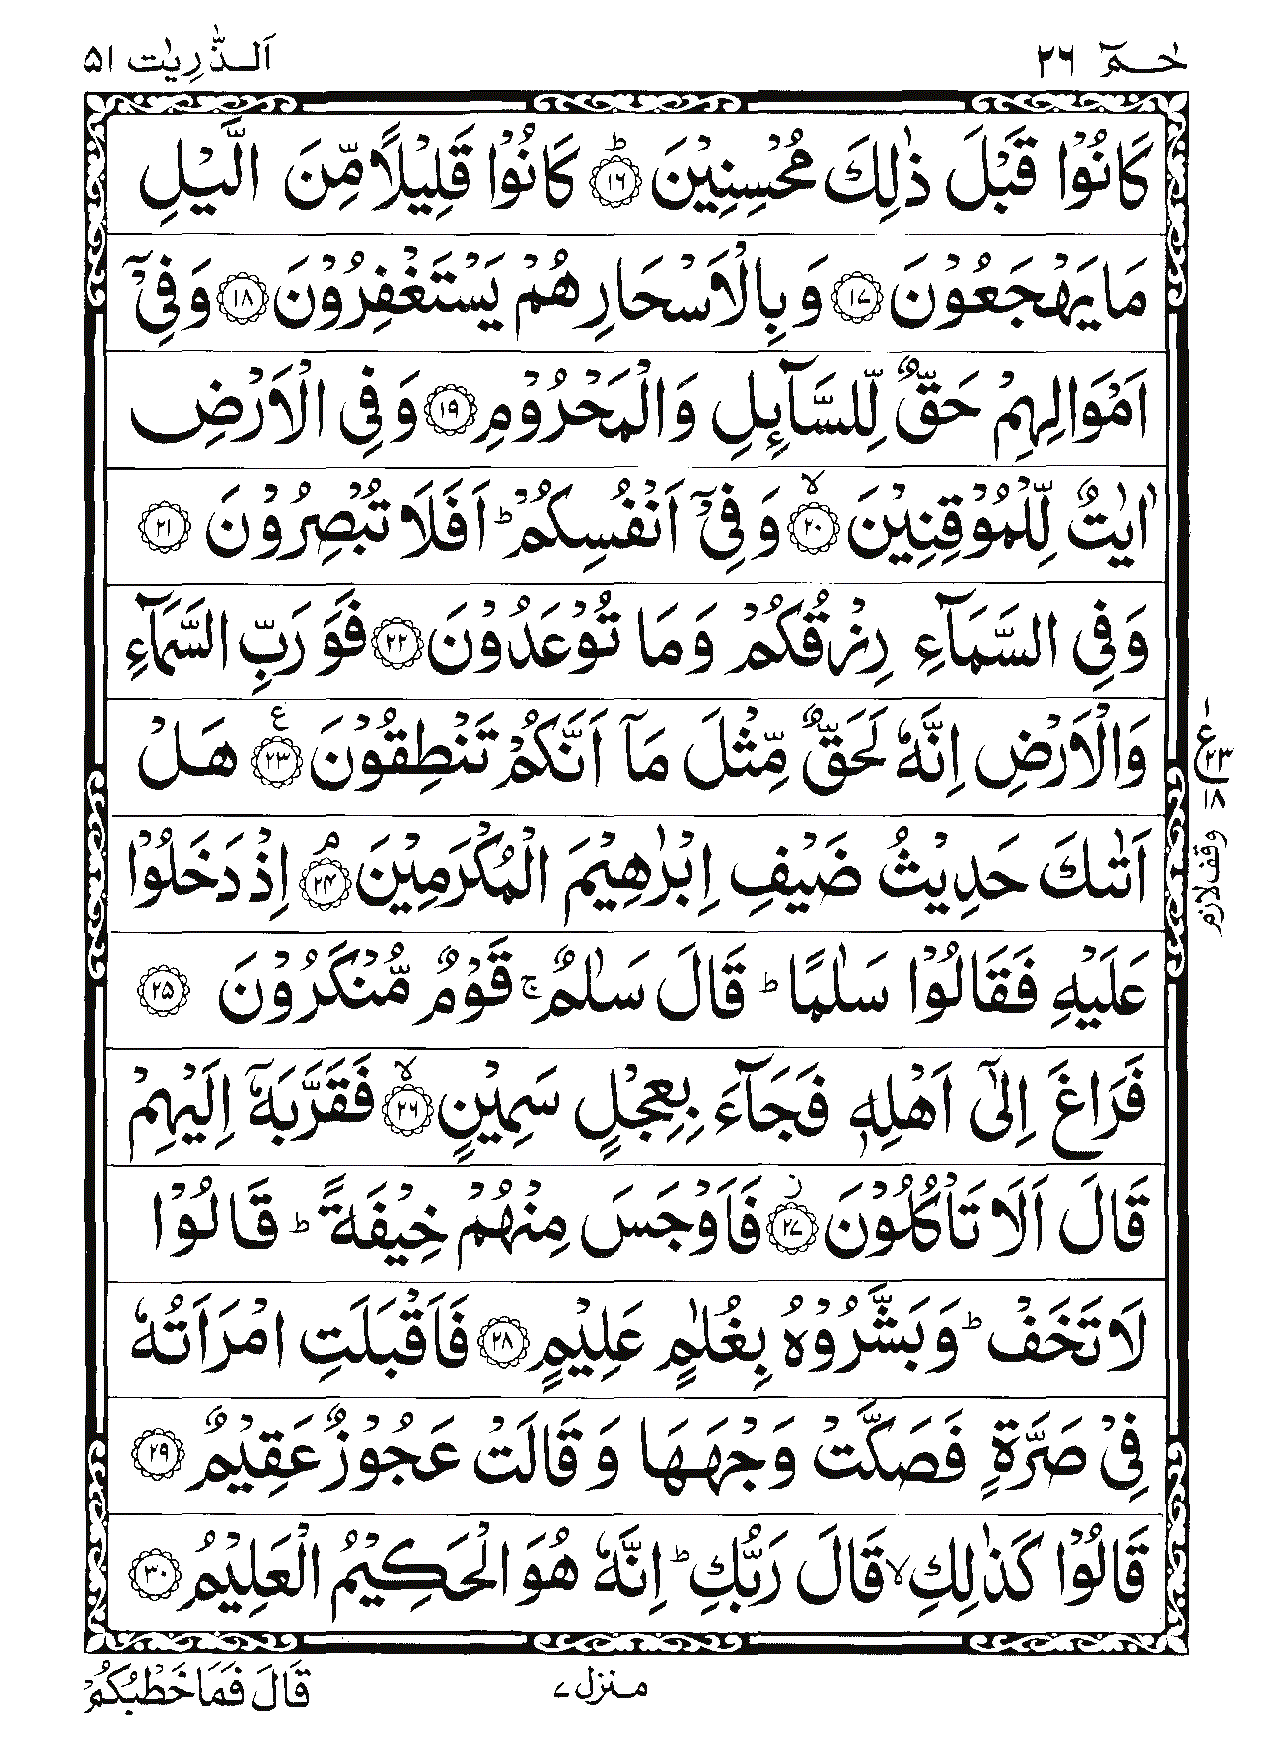 حٰـمٓ ٢٦
اَلـذّٰرِيٰت ٥١
كَانُوْا قَبْلَ ذٰلِكَ مُحْسِنِيْنَ ؕ ﴿۱۶﴾ كَانُوْا قَلِيْلًا مِّنَ الَّيْلِ
مَا يَهْجَعُوْنَ ﴿۱۷﴾ وَ بِالْاَسْحَارِ هُمْ يَسْتَغْفِرُوْنَ ﴿۱۸﴾ وَ فِيْۤ
اَمْوَالِهِمْ حَقٌّ لِّلسَّآىِٕلِ وَالْمَحْرُوْمِ ﴿۱۹﴾ وَ فِي الْاَرْضِ
اٰيٰتٌ لِّلْمُوْقِنِيْنَ ۙ﴿۲۰﴾ وَ فِيْۤ اَنْفُسِكُمْ ؕ اَفَلَا تُبْصِرُوْنَ ﴿۲۱﴾
وَ فِي السَّمَآءِ رِزْقُكُمْ وَ مَا تُوْعَدُوْنَ ﴿۲۲﴾ فَوَ رَبِّ السَّمَآءِ
وَالْاَرْضِ اِنَّهٗ لَحَقٌّ مِّثْلَ مَاۤ اَنَّكُمْ تَنْطِقُوْنَ ﴿۲۳﴾ ع هَلْ
اَتٰىكَ حَدِيْثُ ضَيْفِ اِبْرٰهِيْمَ الْمُكْرَمِيْنَ ۘ﴿۲۴﴾ اِذْ دَخَلُوْا
عَلَيْهِ فَقَالُوْا سَلٰمًا ؕ قَالَ سَلٰمٌ ۚ قَوْمٌ مُّنْكَرُوْنَ ﴿۲۵﴾
فَرَاغَ اِلٰۤى اَهْلِهٖ فَجَآءَ بِعِجْلٍ سَمِيْنٍ ۙ﴿۲۶﴾ فَقَرَّبَهٗۤ اِلَيْهِمْ
قَالَ اَلَا تَاْكُلُوْنَ ز ﴿۲۷﴾ فَاَوْجَسَ مِنْهُمْ خِيْفَةً ؕ قَالُوْا
لَا تَخَفْ ؕ وَ بَشَّرُوْهُ بِغُلٰمٍ عَلِيْمٍ ﴿۲۸﴾ فَاَقْبَلَتِ امْرَاَتُهٗ
فِيْ صَرَّةٍ فَصَكَّتْ وَجْهَهَا وَ قَالَتْ عَجُوْزٌ عَقِيْمٌ ﴿۲۹﴾
قَالُوْا كَذٰلِكِ ۙ قَالَ رَبُّكِ ؕ اِنَّهٗ هُوَ الْحَكِيْمُ الْعَلِيْمُ ﴿۳۰﴾
١
ع
٢٣
١٨
وقف لازم
منزل ٧
قَالَ فَمَا خَطْبُكُمْ